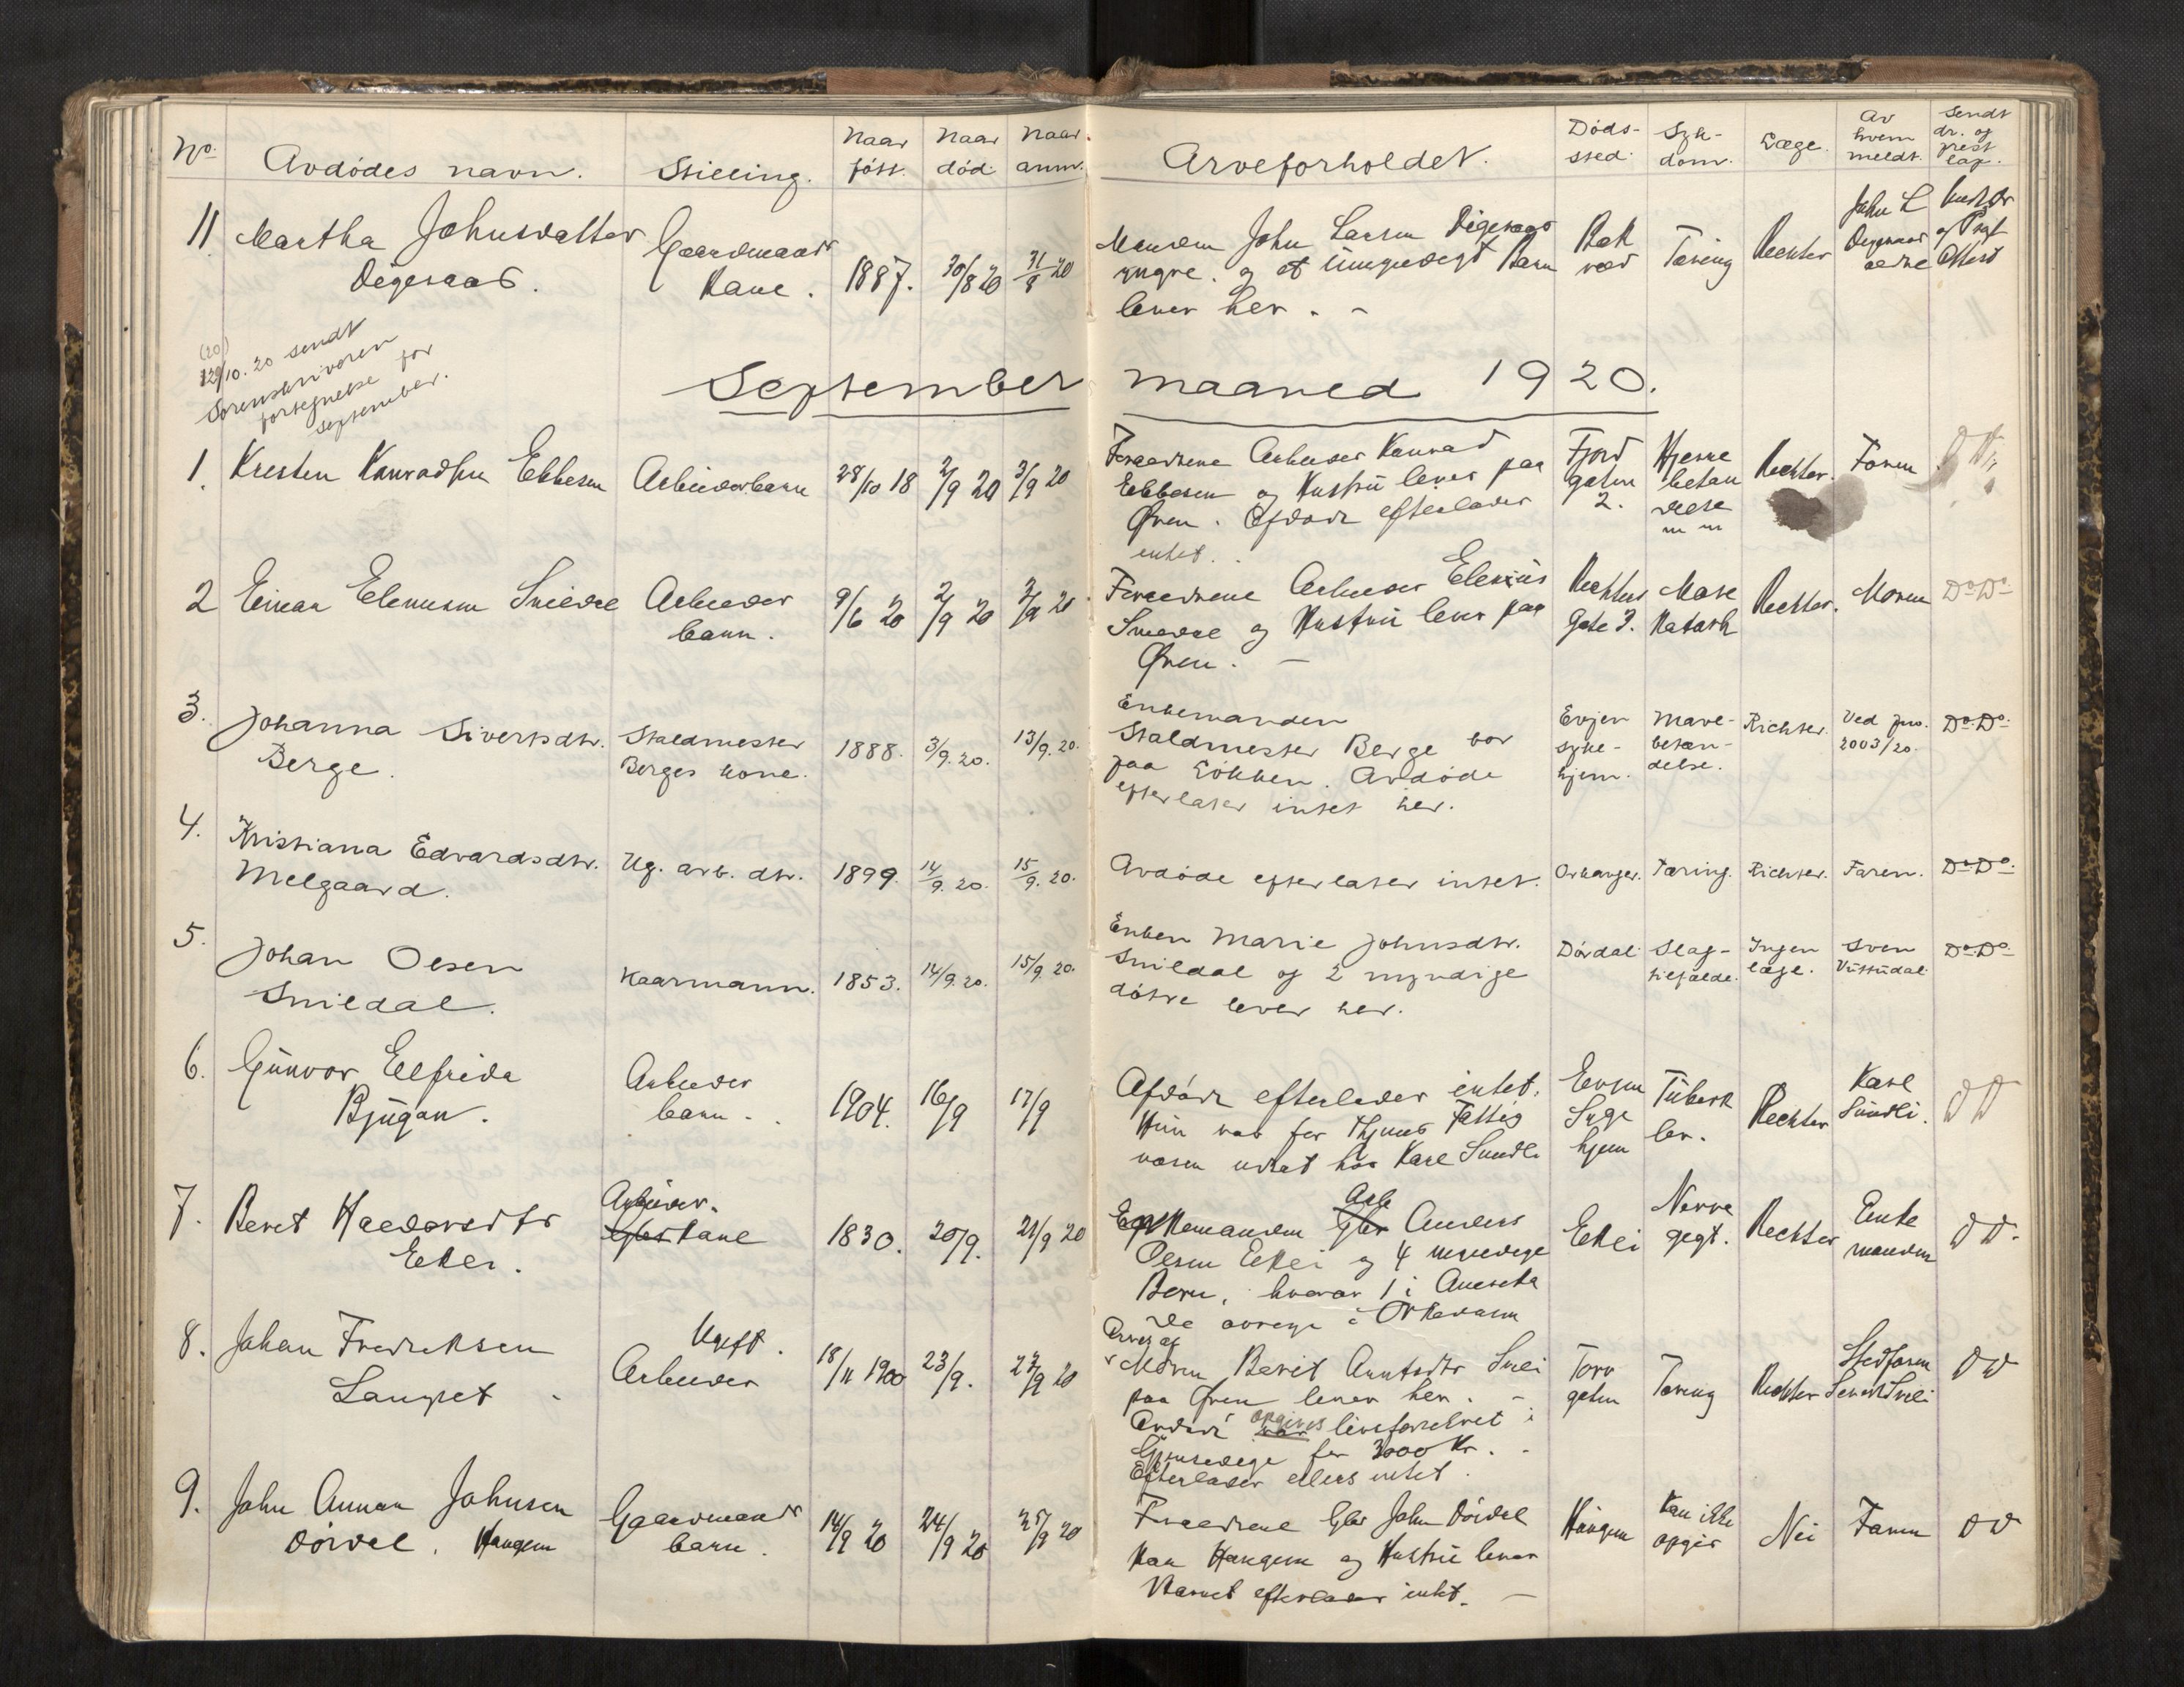 No. Avdødes navn. Stilling. Naar født. Naar død. Naar anm. Arveforholdet. Døds-sted. Syk-dom. Læge. Av hvem meldt. Sendt dr. og prest lap.
11 Martha Johnsdatter Gaardmands 1887. 30/8 20 31/8 20 Manden John Larsen Digeraas Bak Tæring Richter John L
Digeraas. Kone. yngre. og et umyndigt Barn Digeraas
lever her. - ældre
(20)
29/10. 20 sendt
Sorenskriveren
fortegnelse for
september.
September maaned 1920.
1. Kresten Konradsen Ebbesen Arbeiderbarn 28/10 18 2/9 20 3/9 20 Forældrene Arbeider Konrad Fjord Hjerne Richter. Faren
Ebbesen og Hustru lever paa gaten betæn
Øren. Afdøde efterlader 2. delse
intet. m m
2 Einar Elenusen Snildal Arbeider 9/6 20 2/9 20 3/9 20 Forældrene Arbeider Elenius Richters Mave Richter. Moren Do Do
barn. Smedal og Hustru lever paa Gate 3. Katarh
Øren. -
3. Johanna Sivertsdtr. Staldmester 1888. 3/9. 20. 13/9. 20. Enkemanden Evjen Mave- Richter. Ved jno. Do Do.
Berge. Berges kone. Staldmester Berge bor syke- betæn- 2003/20.
paa Løkken. Avdøde hjem. delse.
efterlater intet her.
4. Kristiana Edvardsdtr. Ug. arb. dtr. 1899. 14/9. 20. 15/9. 20. Avdøde efterlater intet. Orkanger. Tæring. Richter. Faren. Do Do.
Melgaard.
5. Johan Olsen Kaarmann. 1853. 14/9. 20. 15/9. 20. Enken Marie Johnsdtr. Dørdal Slag- Ingen Sven Do Do
Snildal. Snildal og 2 myndige tilfælde. læge. Vuttudal
døtre lever her.
6. Gunvor Elfrida Arbeider 1904. 16/9 17/9 Afdøde efterlader intet. Evjen Tuberk Richter Karl D D
Bjugan. barn. Hun var for Fattig Syge ler. Sundli.
væsen udsat hos Karl Sundli hjem
7. Beret Haldorsdtr Arbeider. 1830. 20/9. 21/9 20 Enkemanden Arb Anders Elkei Nerve Richter Enke D D.
kone Olsen Elkei og 4 myndige gigt. manden
Børn, hvorav 1 i Amerika
de øvrige i Orkedalen
8. Johan Fredriksen Ugift. 18/11 1900 23/9. 23/9 20 Moren Berit Arntsdtr Torv Tæring Richter Stedfaren D D
Langset Arbeider paa Øren lever her. - gaten
Avdøde opgives livsforsikret i
for 3000 Kr. -
Efterlader ellers intet.
9. John Gunnar Johnsen Gaardmands 14/9 20 24/9 20 25/9 20 Forældrene Gbr John Dørdal Haugen Kan ikke Nei Faren D D
Dørdal. Haugen barn. Haugen og Hustru lever opgis
Barnet efterlader intet. -